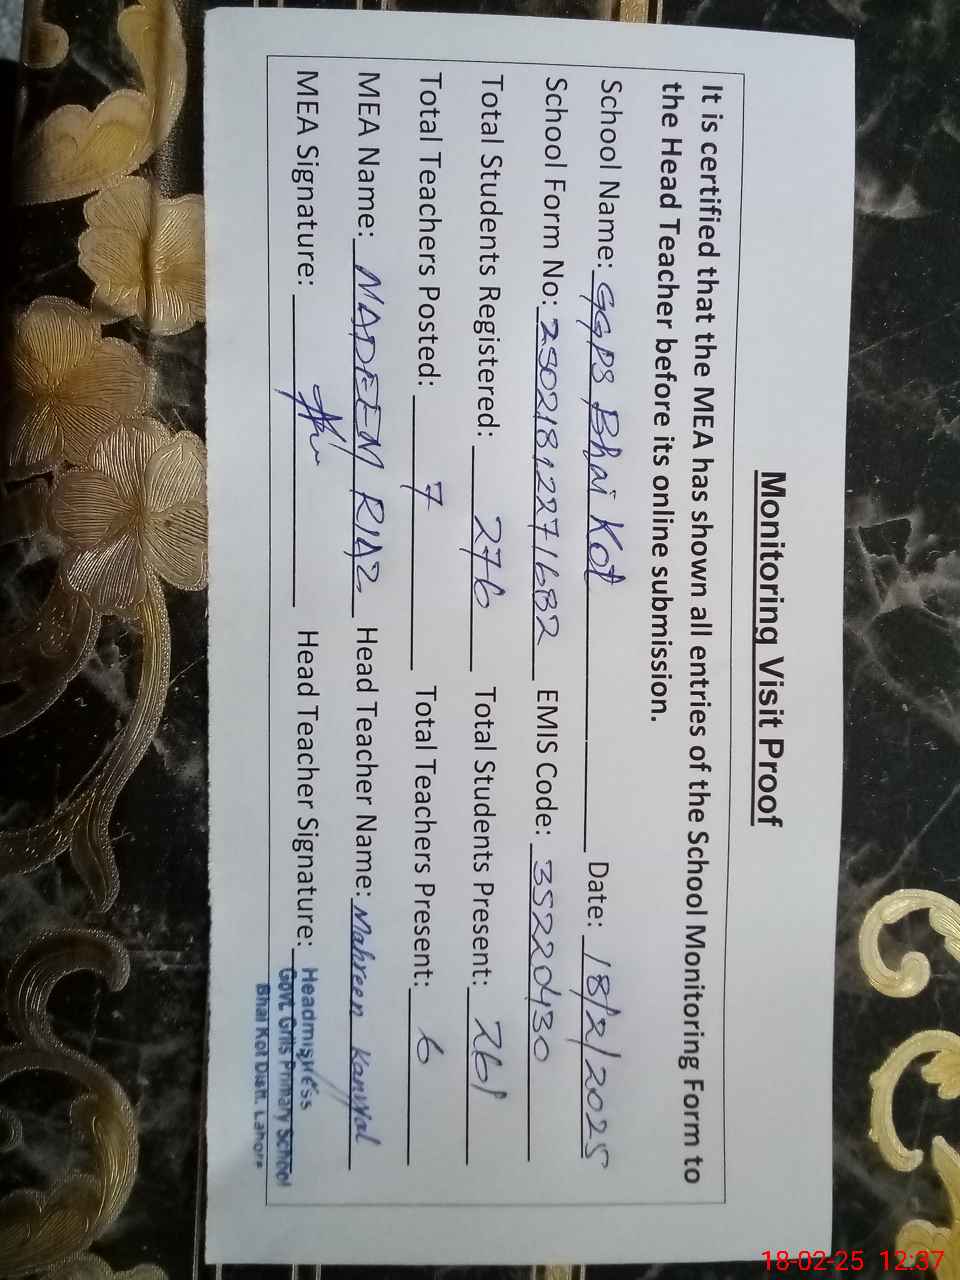 Monitoring Visit Proof
It is certified that the MEA has shown all entries of the School Monitoring Form to
the Head Teacher before its online submission.
School Name: GGPS Bhai Kot Date: 18/2/2025
School Form No: 25021812271682 EMIS Code: 35220430
Total Students Registered: 276 Total Students Present: 261
Total Teachers Posted: 7 Total Teachers Present: 6
MEA Name: NADEEM RIAZ Head Teacher Name: Mahreen Kanwal
MEA Signature: Head Teacher Signature:
Headmistress
Govt. Grils Primary School
Bhai Kot Distt. Lahore
18-02-25 12:37